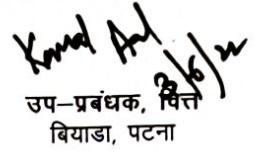 3/6/22
उप-प्रबंधक, वित्त
बियाडा, पटना